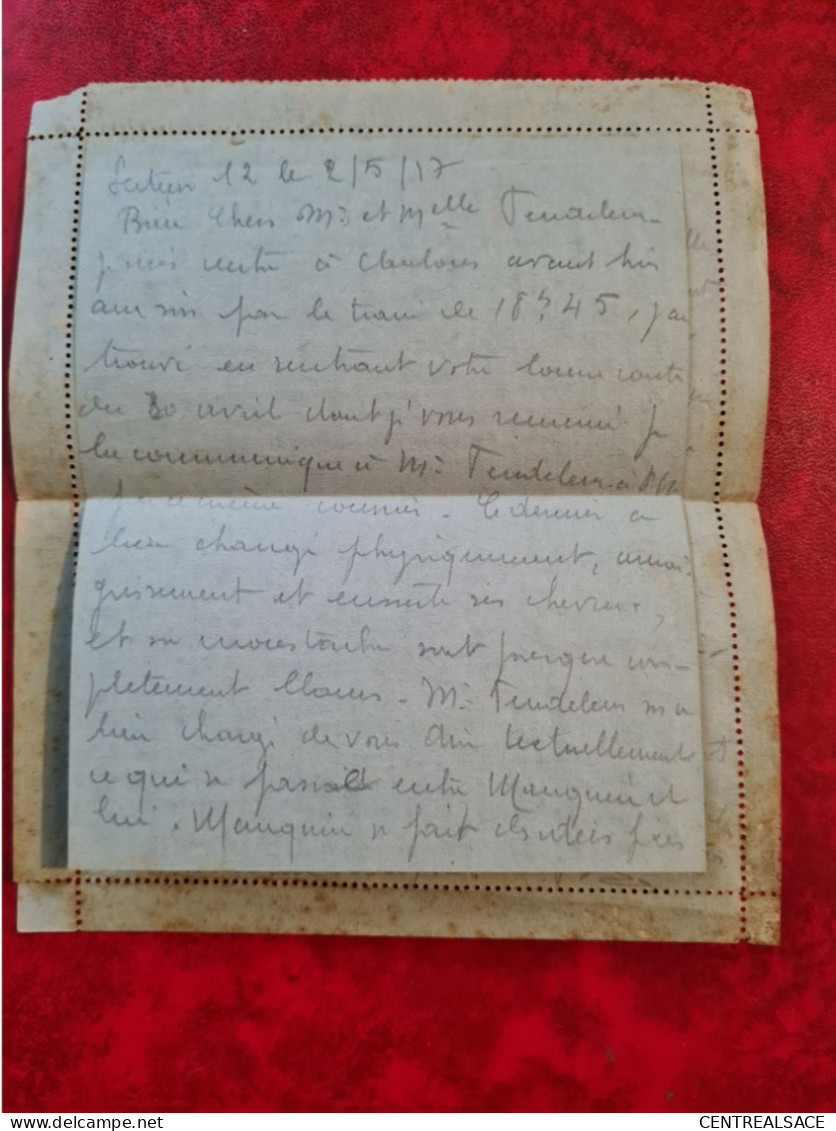 Section 12 le 2/5/17
Bien Chers Mr et Melle Tendeleur
je suis rentré à avant hier
au soir par le train de 18h45, j'ai
trouvé en rentrant votre bonne carte
du 30 avril dont j' vous remercie je
la communique à Mr Tendeleur à
par ce même courrier - Ce dernier a
bien changé physiquement, amai
grissement et ensuite ses cheveux,
et sa moustache sont presque com-
plètement blancs - Mr Tendeleur m'a
bien chargé de vous dire textuellement
ce qui se passait entre Mauquin et
lui. Mauquin se fait des idées
CENTREALSACE